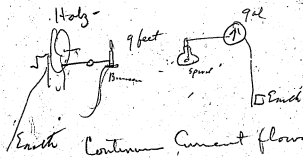 Holtz
9 feet
Bunsen
Spirit
gal
Earth
Earth
Continuous Current flows